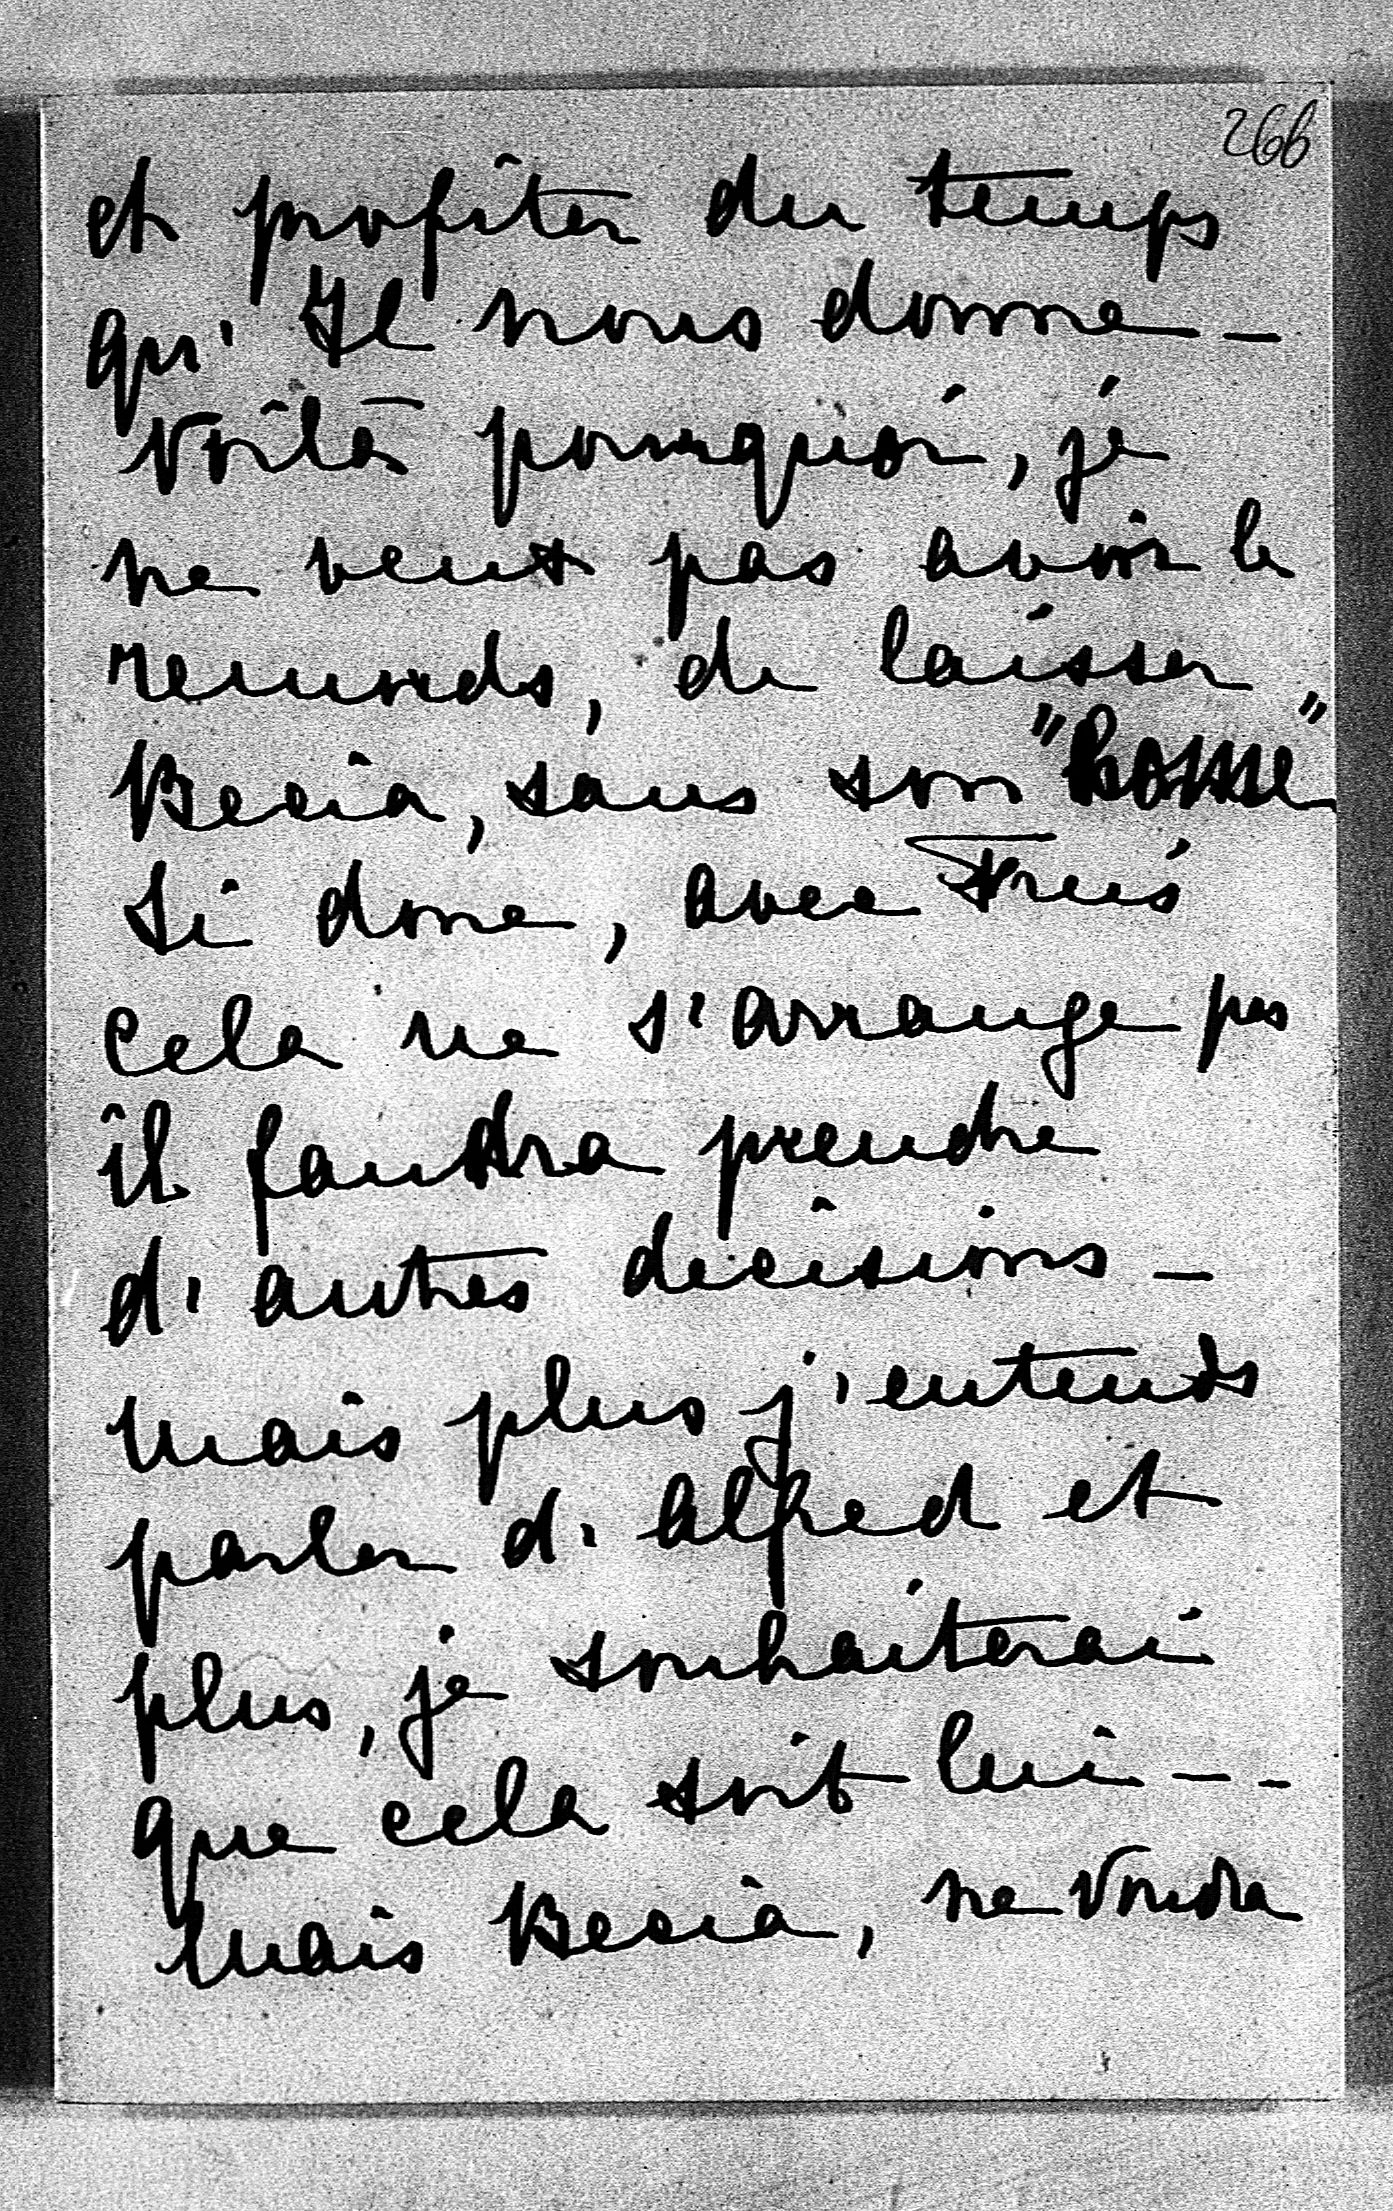 266
et profiter du temps
qu'Il nous donne –
Voilà pourquoi, je
ne veut pas avoir le
remords, de laisser
Becia, sans son "Bosse"
Si donc, avec
cela ne s'arrange pas
il faudra prendre
d'autres décisions –
mais plus j'entends
parler d'Alfred et
plus, je souhaiterai
que cela soit lui – -
mais Becia, ne voudra